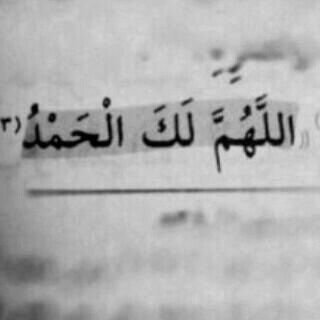 اللَّهُمَّ لَكَ الْحَمْدُ (٣